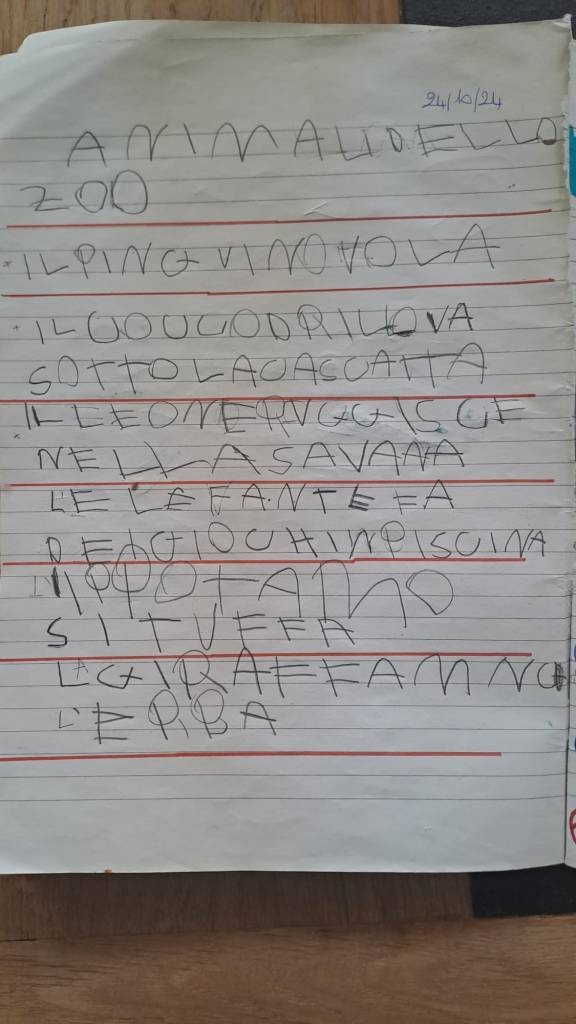 24/10/24
ANIMALI DELLO
ZOO
IL PINGVINO VOLA
IL COUCODRILLO VA
SOTTO LA CASCATTA
IL LEONE RVGGISCE
NELLA SAVANA
L'ELEFANTE FA
DEI GIOCHI IN PISCINA
L'IPPOTAMO
SI TVFFA
LA GIRAFFA MNGI
L'ERBA